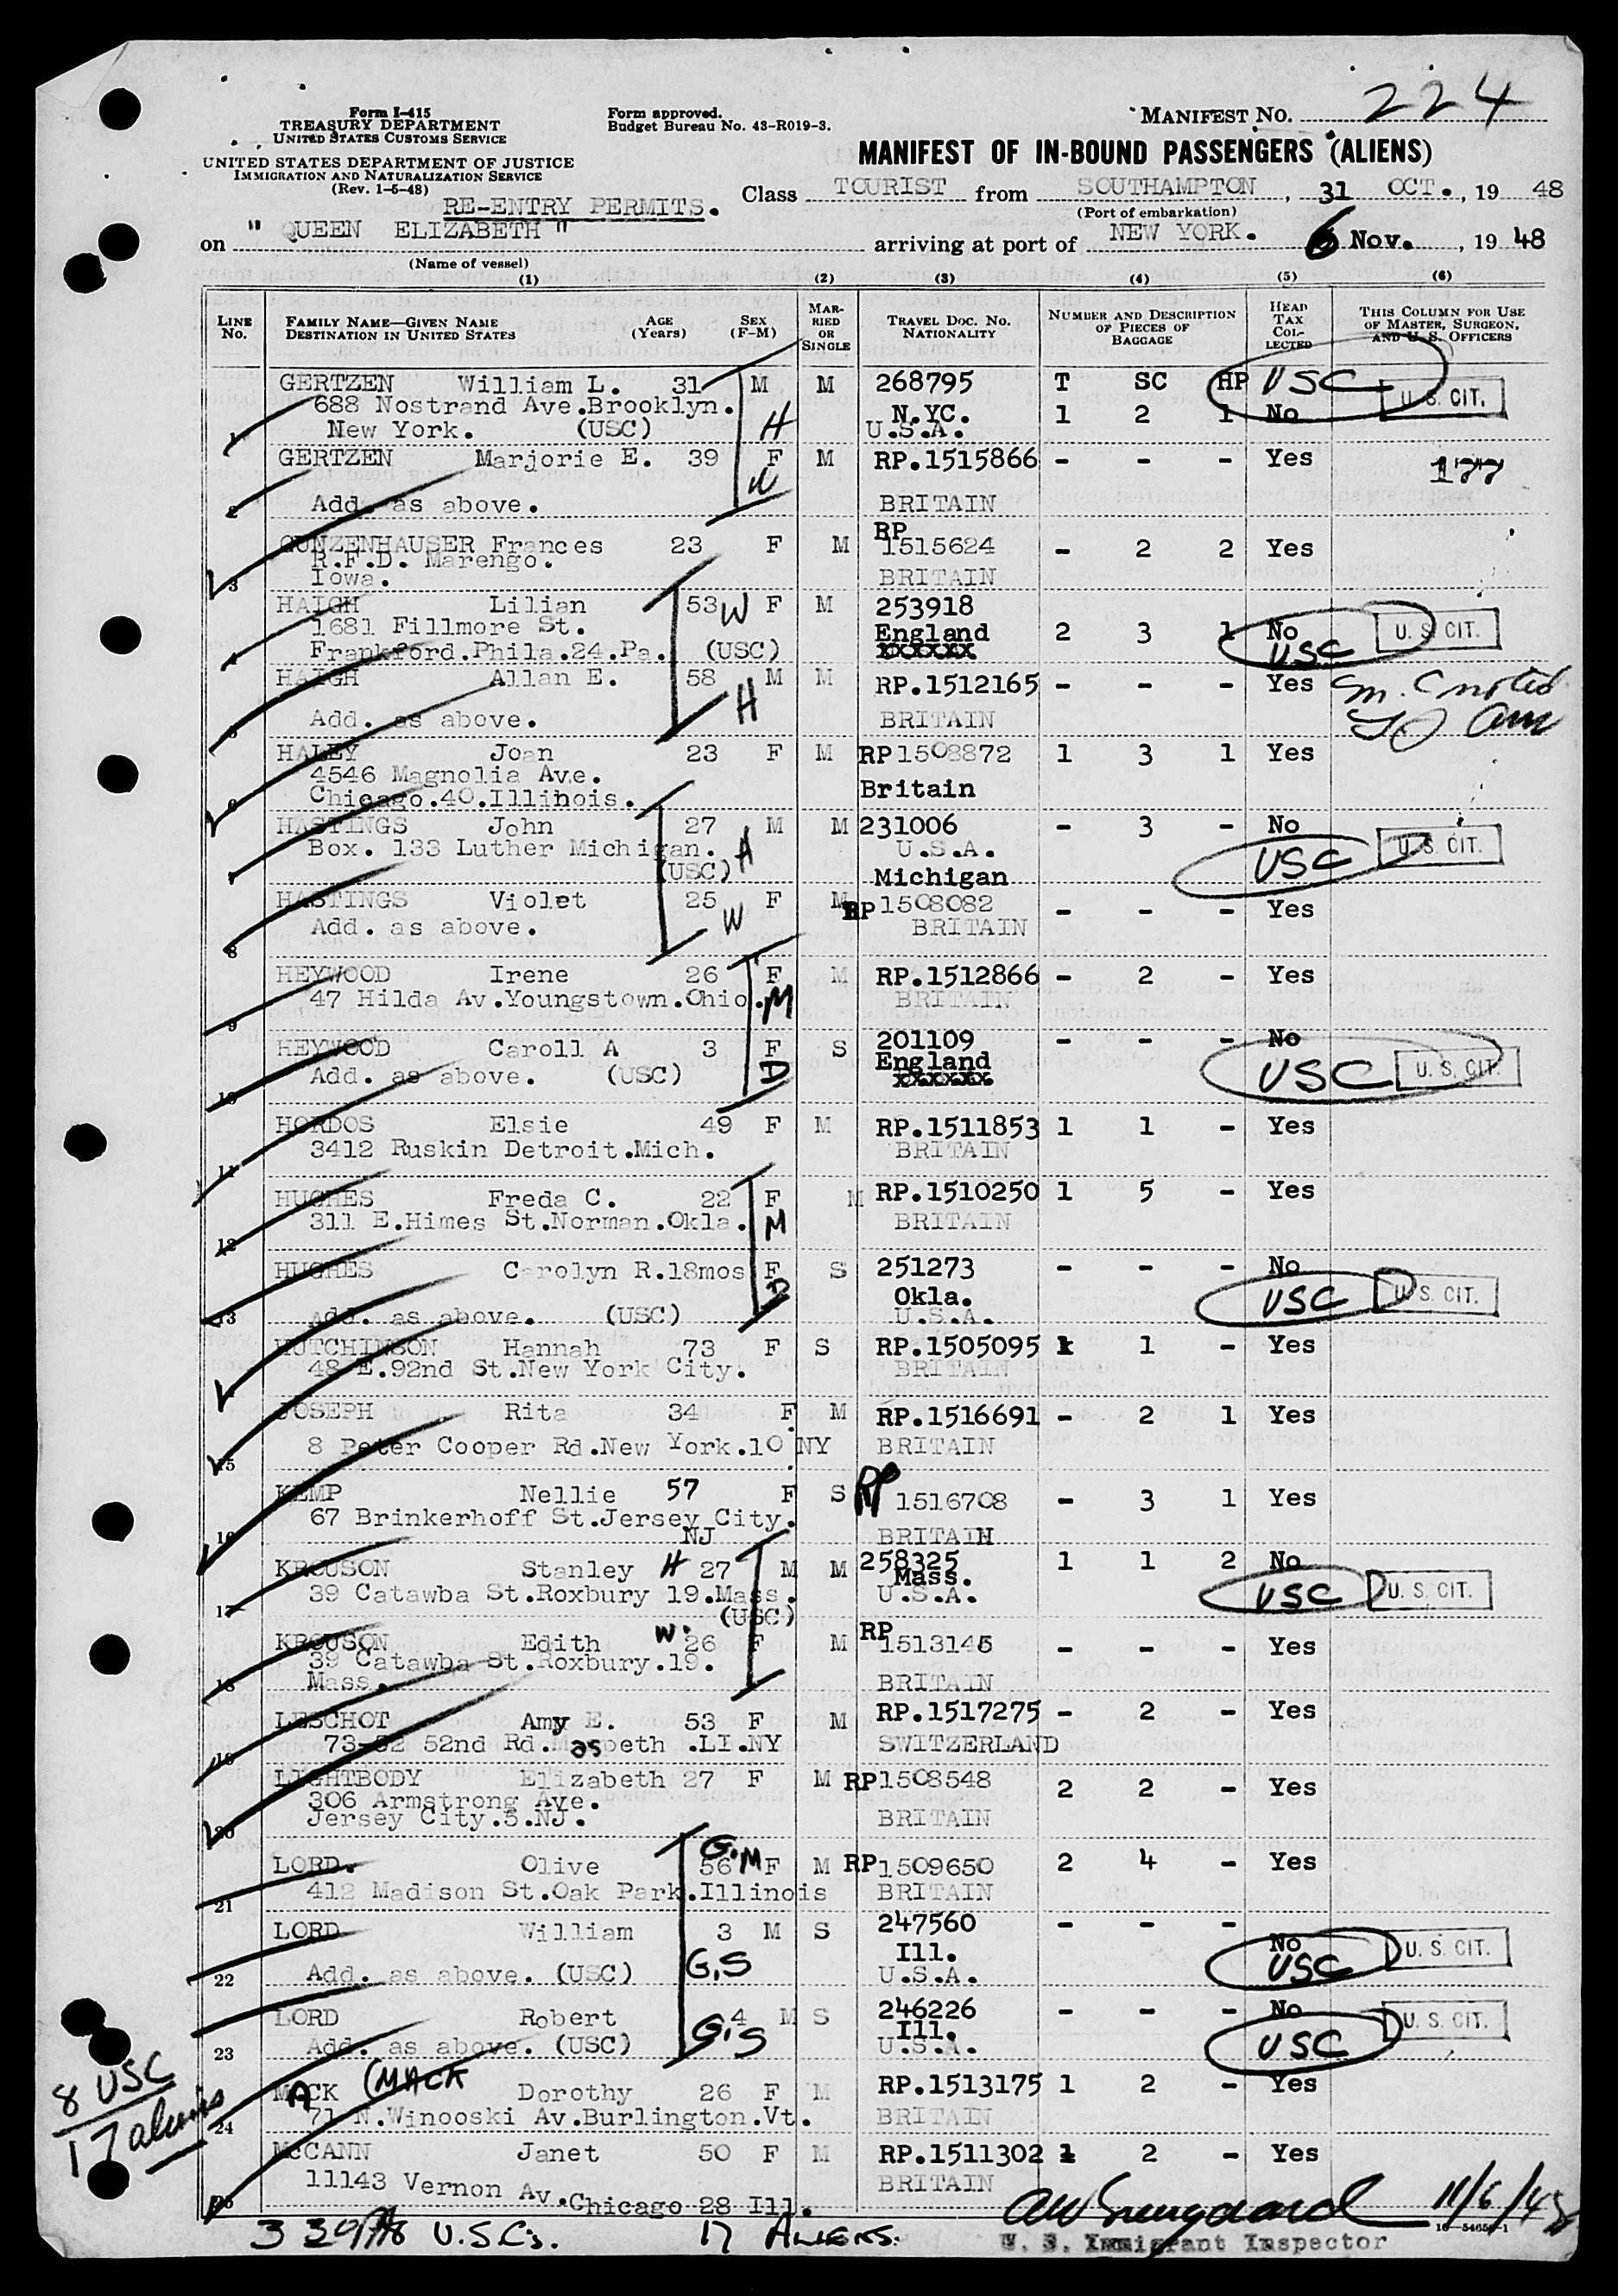 MANIFEST NO. 224
Form I-415
TREASURY DEPARTMENT
UNITED STATES CUSTOMS SERVICE
Form approved.
Budget Bureau No. 43-R019-3.
UNITED STATES DEPARTMENT OF JUSTICE
IMMIGRATION AND NATURALIZATION SERVICE
(Rev. 1-5-48)
MANIFEST OF IN-BOUND PASSENGERS (ALIENS)
RE-ENTRY PERMITS.
Class TOURIST from SOUTHAMPTON, 31 OCT., 19 48
(Port of embarkation)
on " QUEEN ELIZABETH " arriving at port of NEW YORK. 6 Nov., 19 48
(Name of vessel)
(1) (2) (3) (4) (5) (6)
LINE No. FAMILY NAME—GIVEN NAME DESTINATION IN UNITED STATES AGE (Years) SEX (F-M) MARRIED OR SINGLE TRAVEL DOC. NO. NATIONALITY NUMBER AND DESCRIPTION OF PIECES OF BAGGAGE HEAD TAX COLLECTED THIS COLUMN FOR USE OF MASTER, SURGEON, AND U. S. OFFICERS
GERTZEN William L. 31 M M 268795 T SC HP USC U. S. CIT.
688 Nostrand Ave.Brooklyn. N.YC. 1 2 1 No
1 New York. (USC) H U.S.A.
GERTZEN Marjorie E. 39 F M RP.1515866 - - - Yes 177
W
2 Add. as above. BRITAIN
GUNZENHAUSER Frances 23 F M RP 1515624 - 2 2 Yes
R.F.D. Marengo.
3 Iowa. BRITAIN
HAIGH Lilian 53 W F M 253918
1681 Fillmore St. England 2 3 1 No U. S. CIT.
4 Frankford.Phila.24.Pa. (USC) xxxxxx USC
HAIGH Allan E. 58 M M RP.1512165 - - - Yes
H
5 Add. as above. BRITAIN
HALEY Joan 23 F M RP1508872 1 3 1 Yes
4546 Magnolia Ave.
6 Chicago.40.Illinois. Britain
HASTINGS John 27 M M 231006 - 3 - No
Box. 133 Luther Michigan. H U.S.A. USC U. S. CIT.
7 (USC) Michigan
HASTINGS Violet 25 F M RP1508082 - - - Yes
8 Add. as above. W BRITAIN
HEYWOOD Irene 26 F M RP.1512866 - 2 - Yes
9 47 Hilda Av.Youngstown.Ohio. M BRITAIN
HEYWOOD Caroll A 3 F S 201109 - - - No
10 Add. as above. (USC) D England xxxxxx USC U. S. CIT.
HORDOS Elsie 49 F M RP.1511853 1 1 - Yes
11 3412 Ruskin Detroit.Mich. BRITAIN
HUGHES Freda C. 22 F M RP.1510250 1 5 - Yes
12 311 E.Himes St.Norman.Okla. M BRITAIN
HUGHES Carolyn R.18mos F S 251273 - - - No
D Okla. USC U. S. CIT.
13 Add. as above. (USC) U.S.A.
HUTCHINSON Hannah 73 F S RP.1505095 1 1 - Yes
48 E.92nd St.New York City. BRITAIN
JOSEPH Rita 34 F M RP.1516691 - 2 1 Yes
15 8 Peter Cooper Rd.New York.10 NY BRITAIN
KEMP Nellie 57 F S RP 1516708 - 3 1 Yes
16 67 Brinkerhoff St.Jersey City. NJ BRITAIN
KROUSON Stanley H 27 M M 258325 1 1 2 No
39 Catawba St.Roxbury 19.Mass. Mass. USC U. S. CIT.
17 (USC) U.S.A.
KROUSON Edith W. 26 F M RP 1513145 - - - Yes
39 Catawba St.Roxbury.19.
18 Mass. BRITAIN
LESCHOT Amy E. 53 F M RP.1517275 - 2 - Yes
19 73-52 52nd Rd.Maspeth .LI.NY SWITZERLAND
LIGHTBODY Elizabeth 27 F M RP1508548 2 2 - Yes
306 Armstrong Ave.
20 Jersey City.5.NJ. BRITAIN
LORD. Olive 56 G.M F M RP1509650 2 4 - Yes
21 412 Madison St.Oak Park.Illinois BRITAIN
LORD William 3 M S 247560 - - - No
Ill. USC U. S. CIT.
22 Add. as above. (USC) G.S U.S.A.
LORD Robert 4 M S 246226 - - - No
Ill. U. S. CIT.
23 Add. as above. (USC) G.S U.S.A. USC
MACK (MACK Dorothy 26 F M RP.1513175 1 2 - Yes
24 71 N.Winooski Av.Burlington.Vt. BRITAIN
McCANN Janet 50 F M RP.1511302 1 2 - Yes
25 11143 Vernon Av.Chicago 28 Ill. BRITAIN
8 USC
17 aliens
U.S.Cs. 17 ALIENS.
11/6/48
U. S. Immigrant Inspector